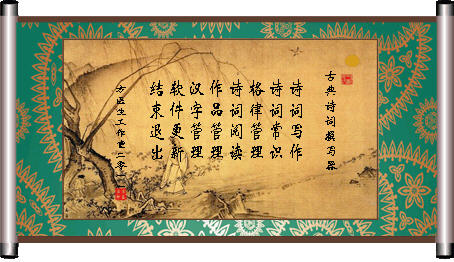 古典诗词撰写器
诗词写作
诗词常识
格律管理
诗词阅读
作品管理
汉字管理
软件更新
结束退出
方医生工作室二零一